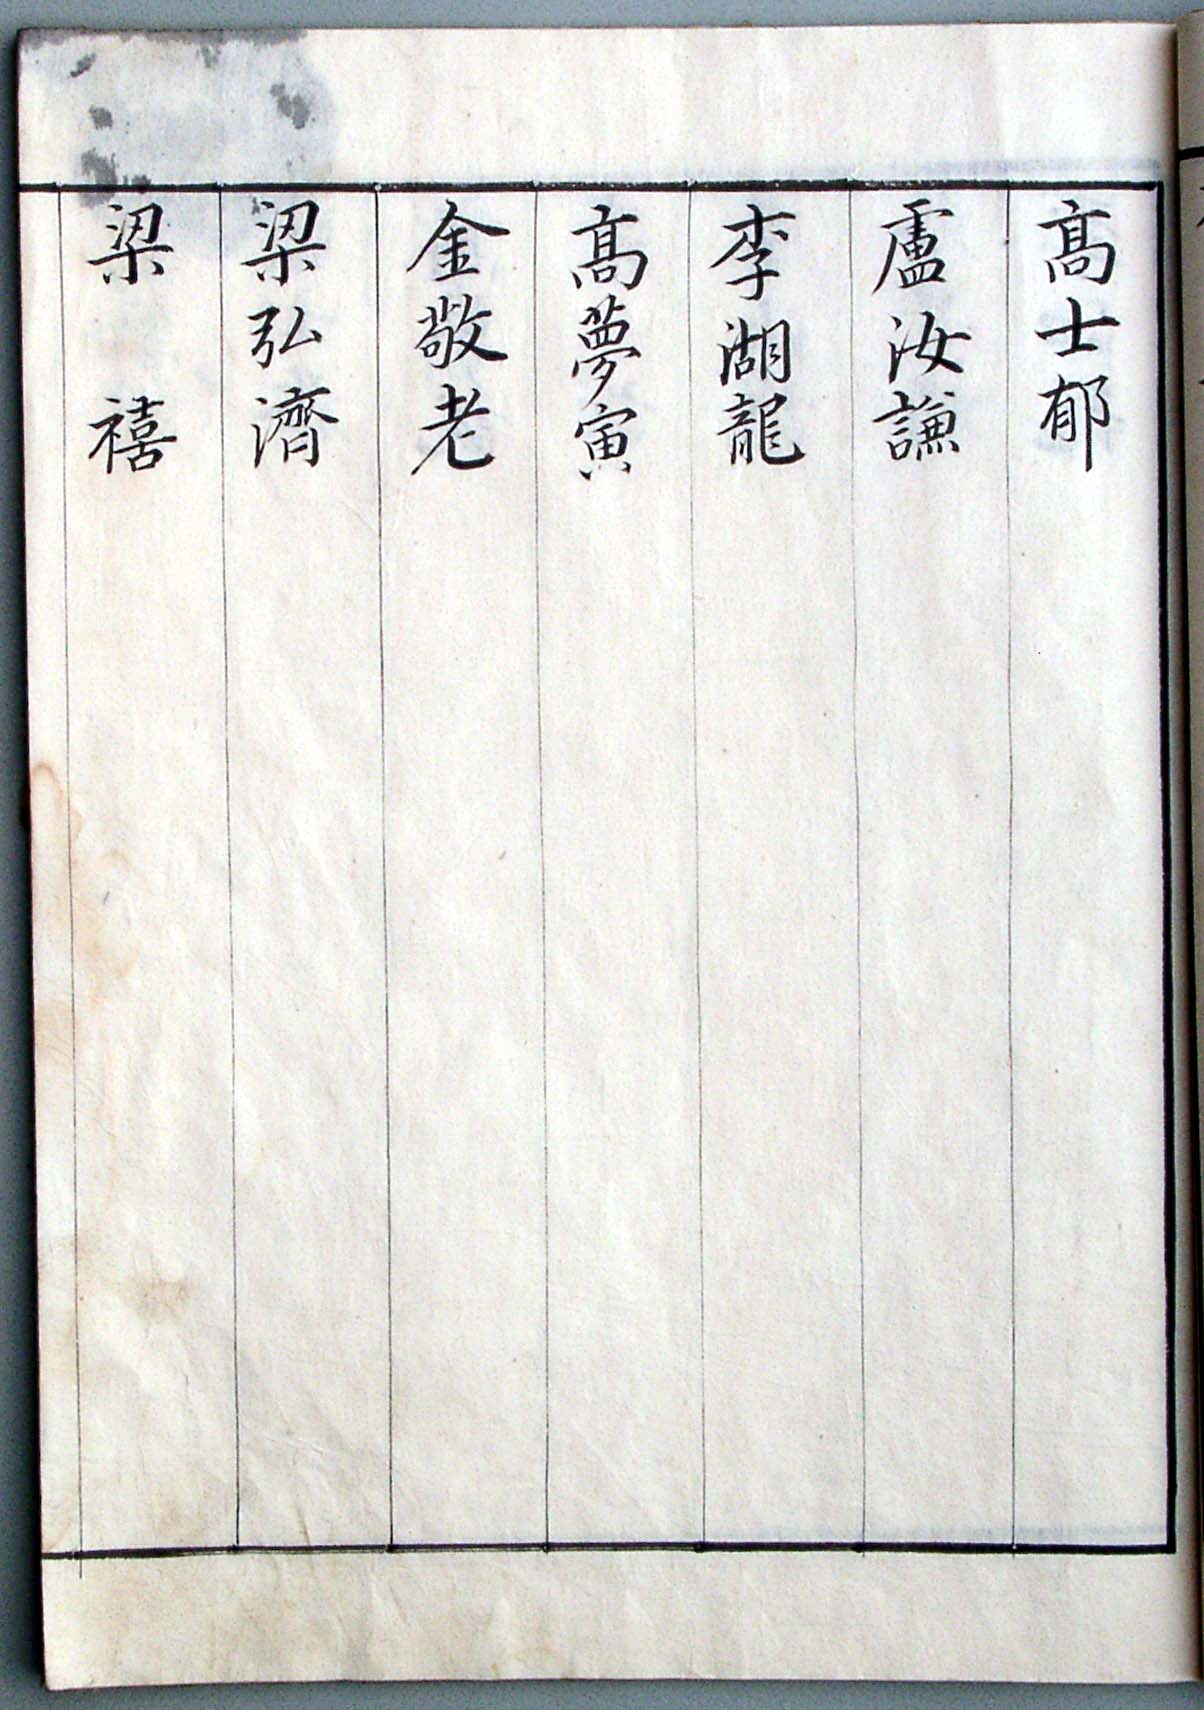 髙士郁
盧汝謙
李湖龍
髙夢寅
金敬老
梁弘濟
梁禧